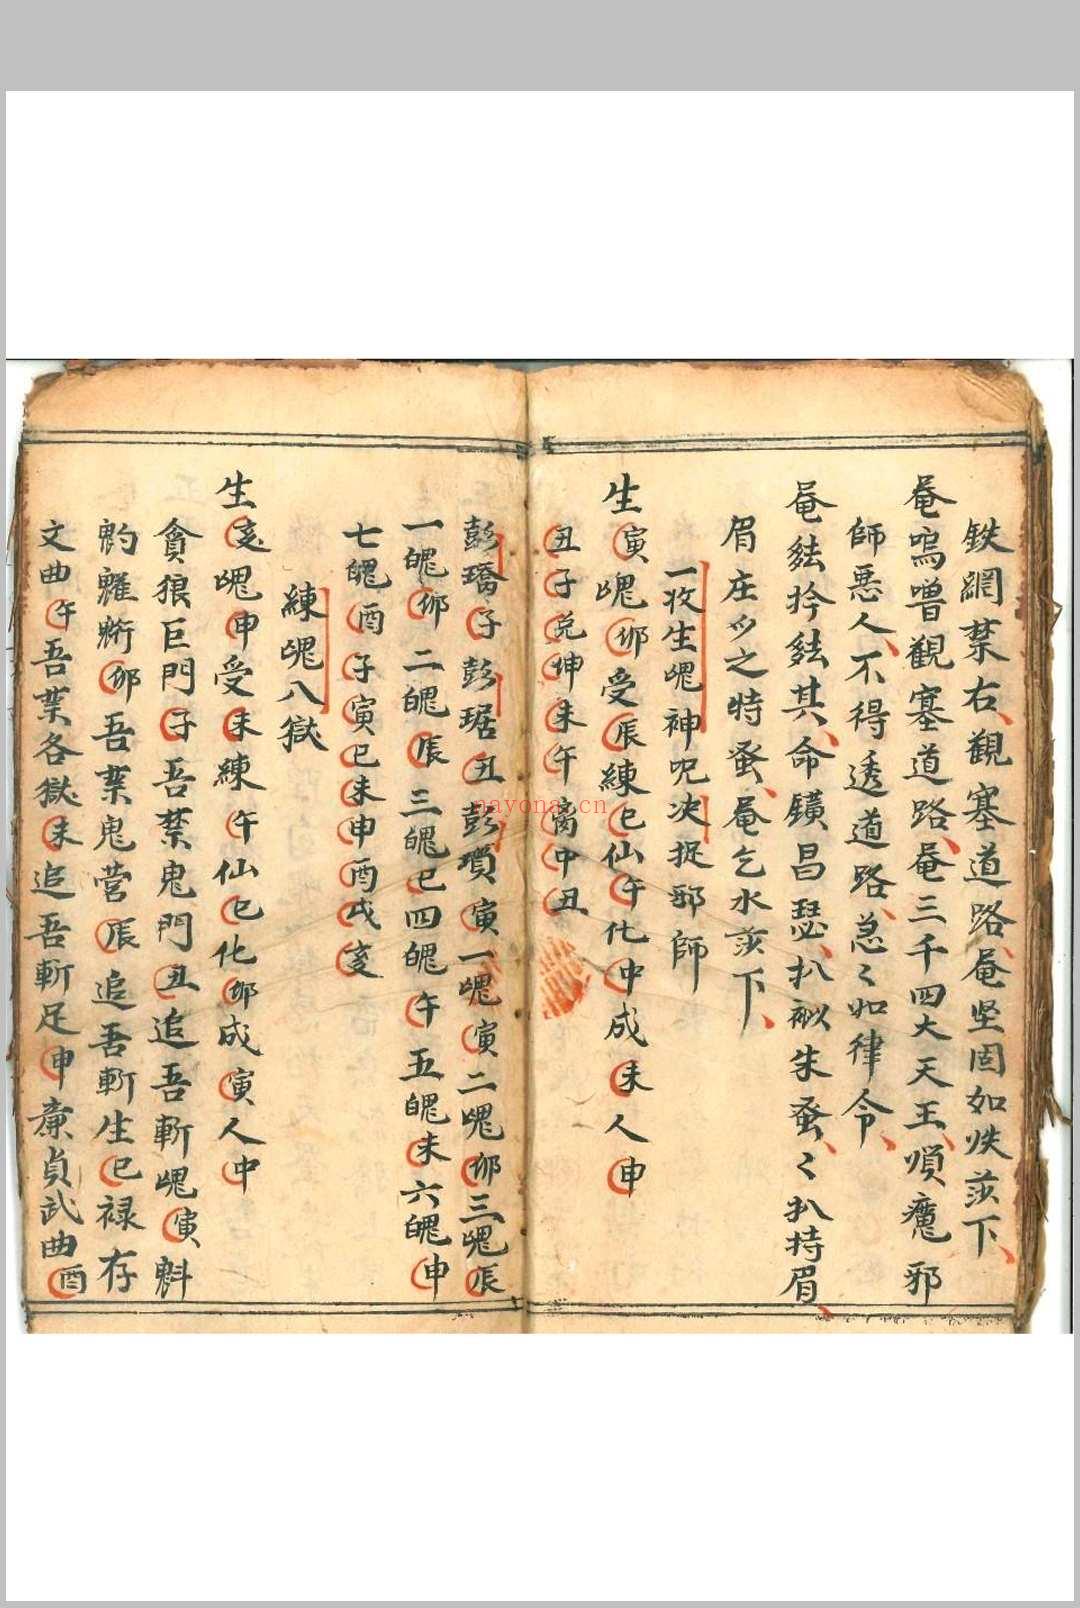 鉄網禁右觀塞道路菴坚固如伏茨下
菴嗚噌觀塞道路菴三千四大天王順魔邪
師悪人不得透道路急〻如律令
菴䤼扲䤼其命鐄昌瑟扒袦朱蚤〻扒持眉
眉庄之時蚤菴乞水茨下
一收生魂神呪决捉邪師
生寅魂卯受辰練巳仙午化中成未人申
丑子兑坤未午离中丑
彭瑀子彭琚丑彭瓆寅一魂寅二魂卯三魂辰
一魄卯二魄辰三魄巳四魄午五魄未六魄申
七魄酉子寅巳未申酉戌亥
練魂八獄
生亥魂申受未練午仙巳化卯成寅人中
貪狼巨門子吾禁鬼門丑追吾斬魂寅魁
卯吾禁鬼营辰追吾斬生巳禄存
文曲午吾禁各獄未追吾斬足申亷貞武曲酉
nayona.cn